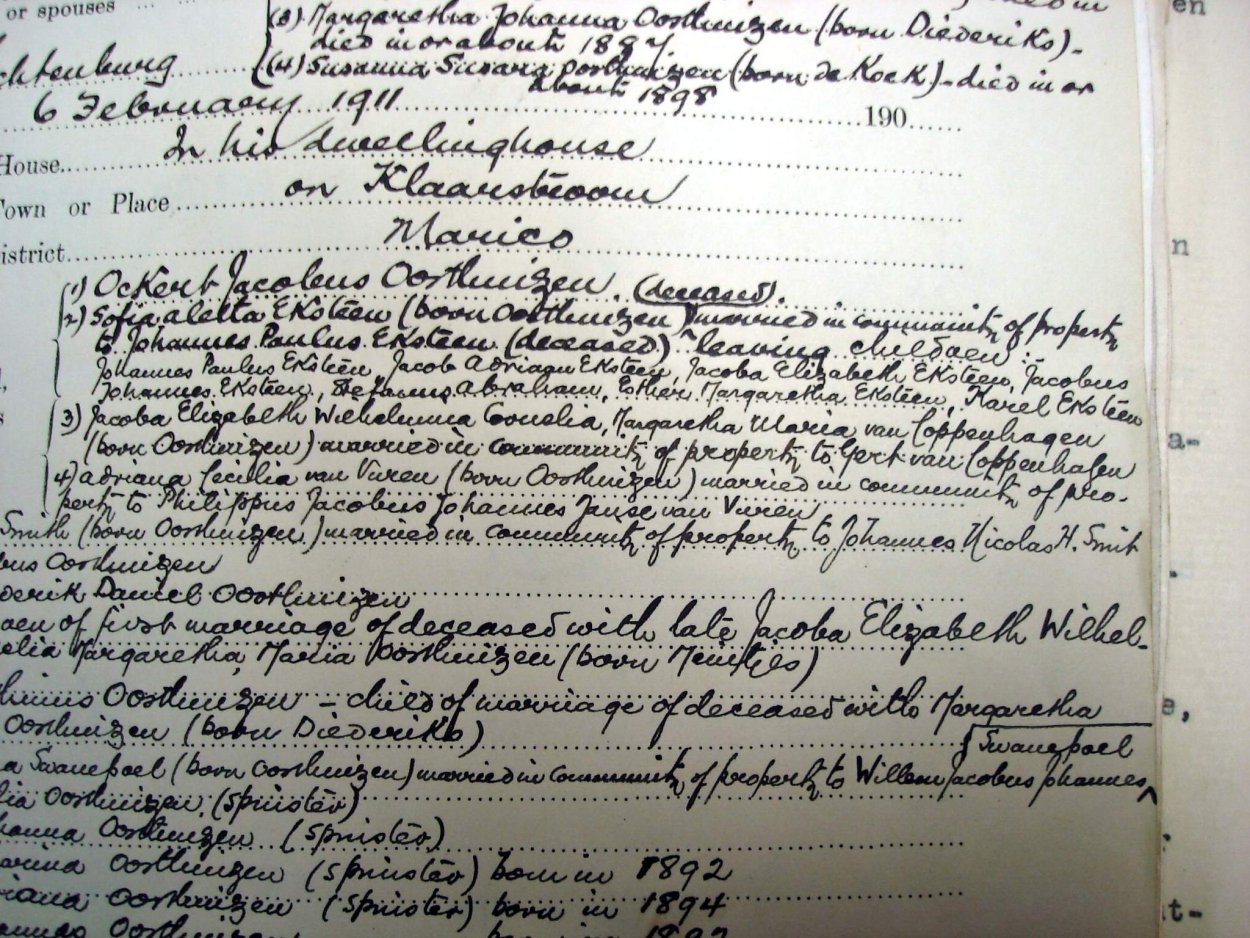 or spouses
(3) Margaretha Johanna Oosthuizen (born Diederiks)-
died in or about 1887.
chtenburg (4) Susanna Susara Oosthuizen (born de Kock) - died in or
about 1898
6 February 1911 190
House In his dwellinghouse
Town or Place on Klaarstroom
istrict Marico
1) Ockert Jacobus Oosthuizen. (deceased).
2) Sofia Aletta Eksteen (born Oosthuizen) married in community of property
to Johannes Paulus Eksteen (deceased) leaving children:-
Johannes Paulus Eksteen, Jacob Adriaan Eksteen, Jacoba Elizabeth Eksteen, Jacobus
Johannes Eksteen, Stefanus Abraham, Esther Margaretha Eksteen, Karel Eksteen
3) Jacoba Elizabeth Wilhelmina Cornelia, Margaretha Maria van Coppenhagen
(born Oosthuizen) married in community of property to Gert van Coppenhagen
4) Adriana Cecilia van Vuren (born Oosthuizen) married in community of pro-
perty to Philippus Jacobus Johannes Janse van Vuren
Smith (born Oosthuizen) married in community of property to Johannes Nicolas H. Smit
bus Oosthuizen
derik Daniel Oosthuizen
of first marriage of deceased with late Jacoba Elizabeth Wilhel-
elia Margaretha, Maria Oosthuizen (born Meintjes)
Oosthuizen - child of marriage of deceased with Margaretha
Oosthuizen (born Diederiks)
Swanepoel
a Swanepoel (born Oosthuizen) married in community of property to Willem Jacobus Johannes
lia Oosthuizen. (Spinster)
hanna Oosthuizen (Spinster)
arina Oosthuizen (Spinster) born in 1892
riana Oosthuizen (Spinster) born in 1894
Oosthuizen born in 1892
en
n
a-
e,
t-